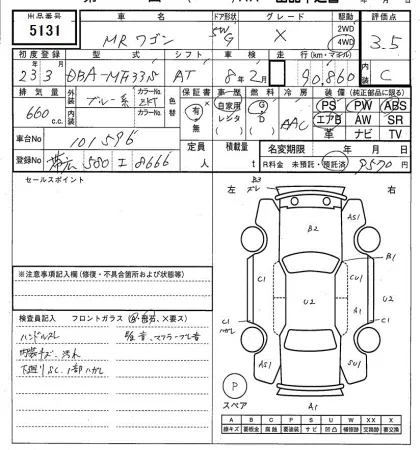 出品番号 車名 ドア形状 グレード 駆動 評価点
5131 MRワゴン 5W G X 2WD 4WD 3.5
初度登録 型式 シフト 車検 走行(km・マイル) 内装
23 3 DBA-MF33S AT 8年2月 90860 C
排気量 外装 カラーNo. 色替 保証書 車歴 燃料 冷房 装備(純正部品に限る)
660 c.c. ブルー系 ZKT 有・無 自家用 レンタ G D AAC PS PW ABS
内装 カラーNo. エアB AW SR
革 ナビ TV
車台No 101596 定員 人 積載量 t 名変期限 年 月 日
登録No 帯広 580 エ 8666 R料金 未預託・預託済 9570円
セールスポイント 左 右
B3 ズレ
AS1
B2
B1
C1 U2 CU1
U2 A1
C1 ハガレ C1
AS1 SU1
P
スペア A1
※注意事項記入欄(修復・不具合箇所および状態等)
検査員記入 フロントガラス
ハンドルスレ
内装キズ、汚れ
下廻りSC、1部ハガレ
A B C P S U W X XX
線キズ 要板金 腐蝕 要塗装 サビ 凹凸 補修跡 交換跡